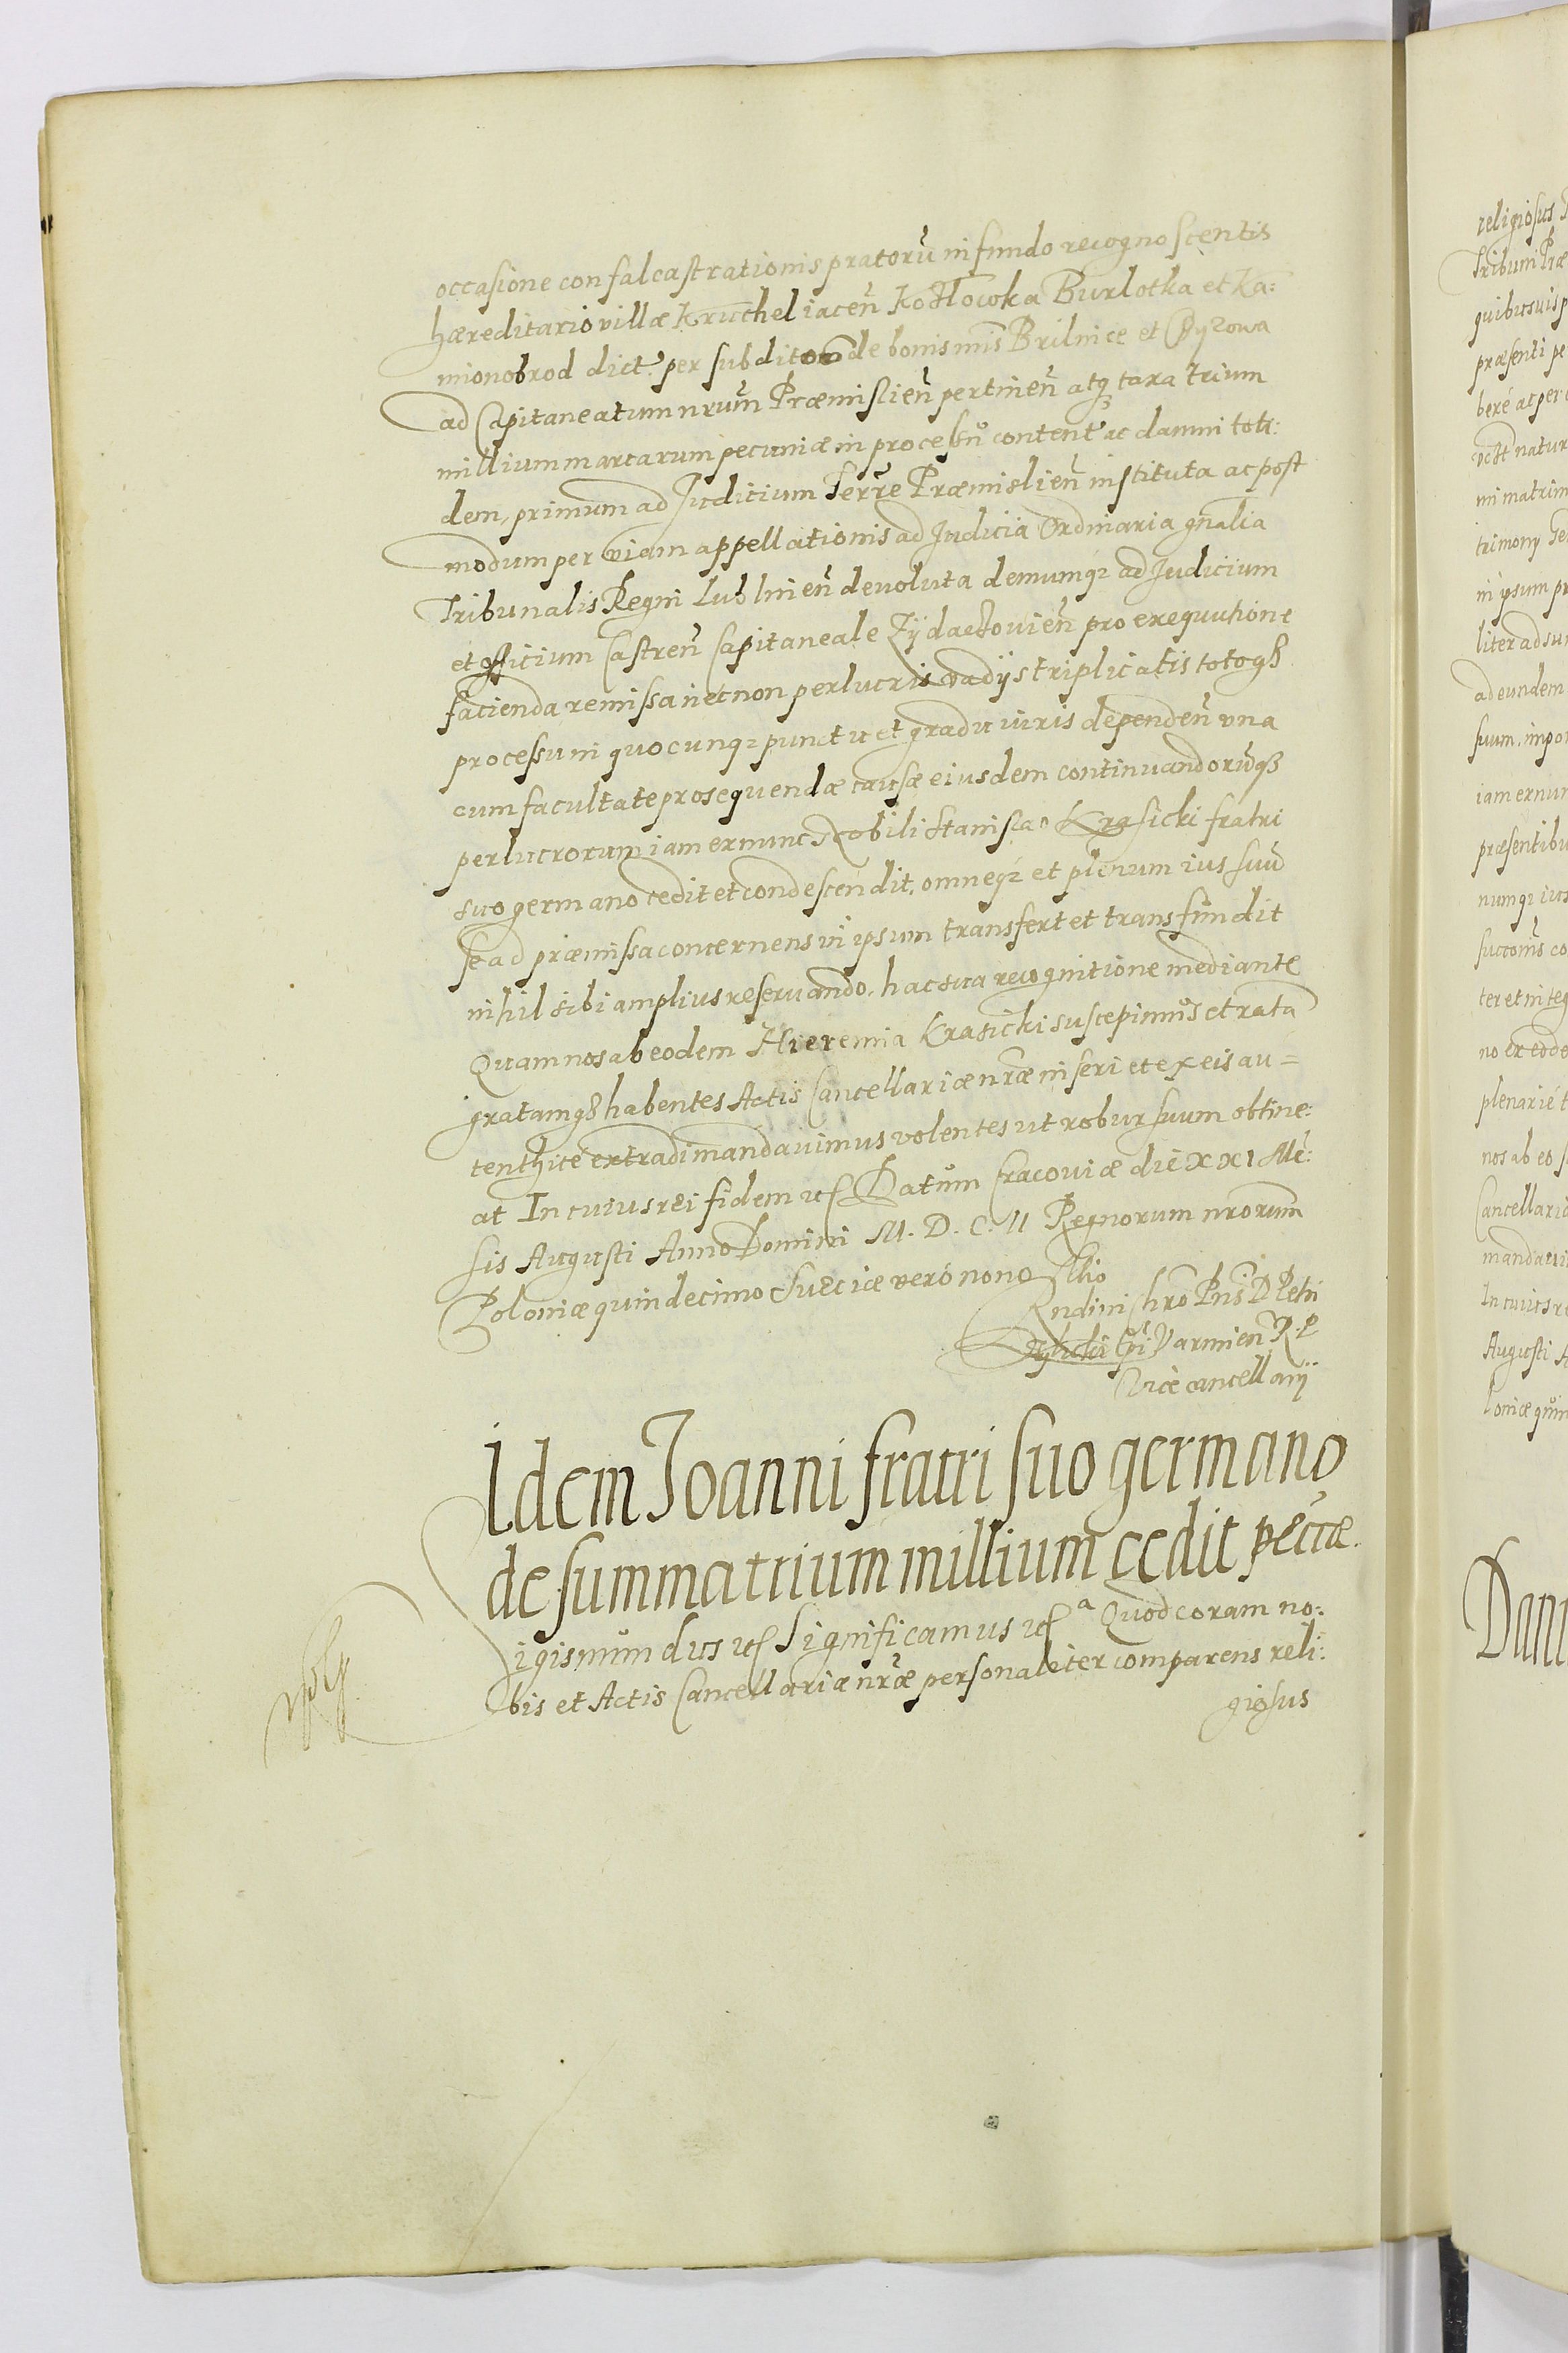 occasione confalcastrationis pratorū in fundo recognoscentis
hæreditario villæ Kruchel iacen̄ Kotłowka Burlotka et Ka:
mionobrod dict. per subditos de bonis nr̄is Brilnice et
ad Capitaneatum nrūm Præmislien̄ pertinen̄ atq taxa trium
millium marcarum pecuniæ in processu content ac damni toti:
dem, primum ad Judicium Terrē Præmislien̄ instituta ac post
modum per viam appellationis ad Judicia Ordinaria gn̄alia
Tribunalis Regni Lublinen̄ devoluta demumq; ad Judicium
et officium Castren̄ Capitaneale Zÿdaczovien̄ pro exequutione
facienda remissa nec non perlucris vadÿs triplicatis totoq
processu in quocunq; punctu et gradu iuris dependen̄ una
cum facultate prosequendæ causæ eiusdem continuandorūq
perlucrorum iam ex nunc Nobili Stanislaº Krasicki fratri
suo germano cedit et condescendit, omneq; et plenum ius suū
se ad præmissa concernens in ipsum transfert et transfundit
nihil sibi amplius reservando, hac sua recognitione mediante
Quam nos ab eodem Hieremia Krasicki suscepimus et ratā
gratamq habentes Actis Cancellariæ nræ inseri et ex eis au=
tenthice extradi mandavimus volentes ut robur suum obtine:
at In cuius rei fidem etc Datum Cracoviæ die XXI Mē:
sis Augusti Anno Domini M. D. C. II Regnorum nrorum
Poloniæ quindecimo Sueciæ verò nono
Rndi in Chrō Pris D Petri
Tylicki Epi Varmien R. P
Vice cancellarij
Idem Joanni fratri suo germano
de summa trium millium cedit pecuæ.
Sigismundus etc Significamus etc ᵃ Quod coram no:
bis et Actis Cancellariæ nræ personaliter comparens reli:
giosus
religiosus
Tribuni Præ
quibusuis p
præsenti pe
bere ac per
natur
ni matrim
trimony
in ipsum pr
liter ad su
ad eundem
suum, impo
iam ex nun
præsentibu
numq; ius
succom̄s co
ter et integ
no ex eode
plenariè
nos ab eo
Cancellariæ
mandavi
In cuius re
Augusti
loniæ quin
Dani